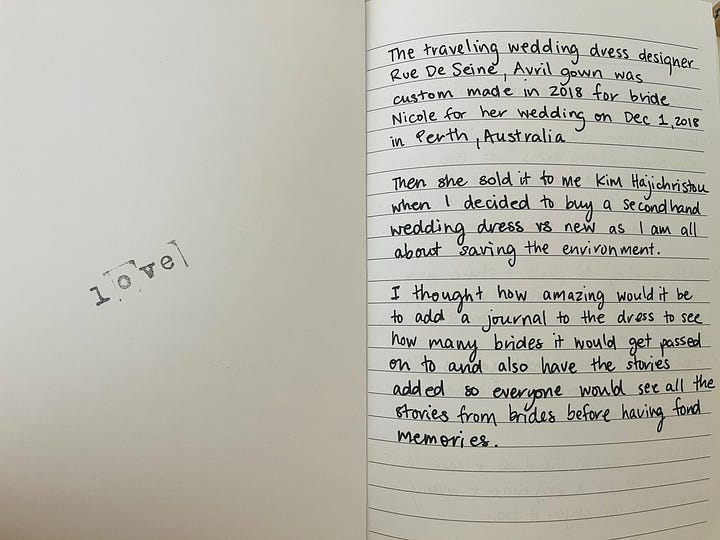 love
The traveling wedding dress designer
Rue De Seine, Avril gown was
custom made in 2018 for bride
Nicole for her wedding on Dec 1, 2018
in Perth, Australia
Then she sold it to me Kim Hajichristou
when I decided to buy a secondhand
wedding dress vs new as I am all
about saving the environment.
I thought how amazing would it be
to add a journal to the dress to see
how many brides it would get passed
on to and also have the stories
added so everyone would see all the
stories from brides before having fond
memories.